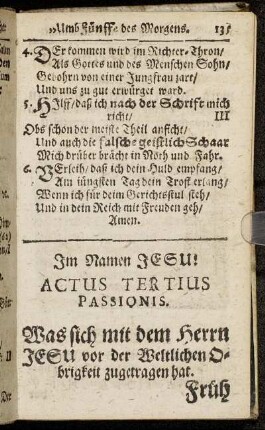 Umb fünff= des Morgens. 135
4. DEr kommen wird im Richter-Thron/
Als Gottes und des Menschen Sohn/
Gebohrn von einer Jungfrau zart/
Und uns zu gut erwürget ward.
5. HIlff/ daß ich nach der Schrifft mich
richt/ III
Obs schon der meiste Theil anficht/
Und auch die falsch-geistlich Schaar
Mich drüber brächt in Nöth und Fahr.
6. VErleih/ daß ich dein Huld empfang/
Am jüngsten Tag dein Trost erlang/
Wenn ich für deim Gerichtsstul steh/
Und in dein Reich mit Freuden geh/
Amen.
Im Namen JESU!
ACTUS TERTIUS
PASSIONIS.
Was sich mit dem Herrn
JESU vor der Weltlichen O-
brigkeit zugetragen hat.
Früh